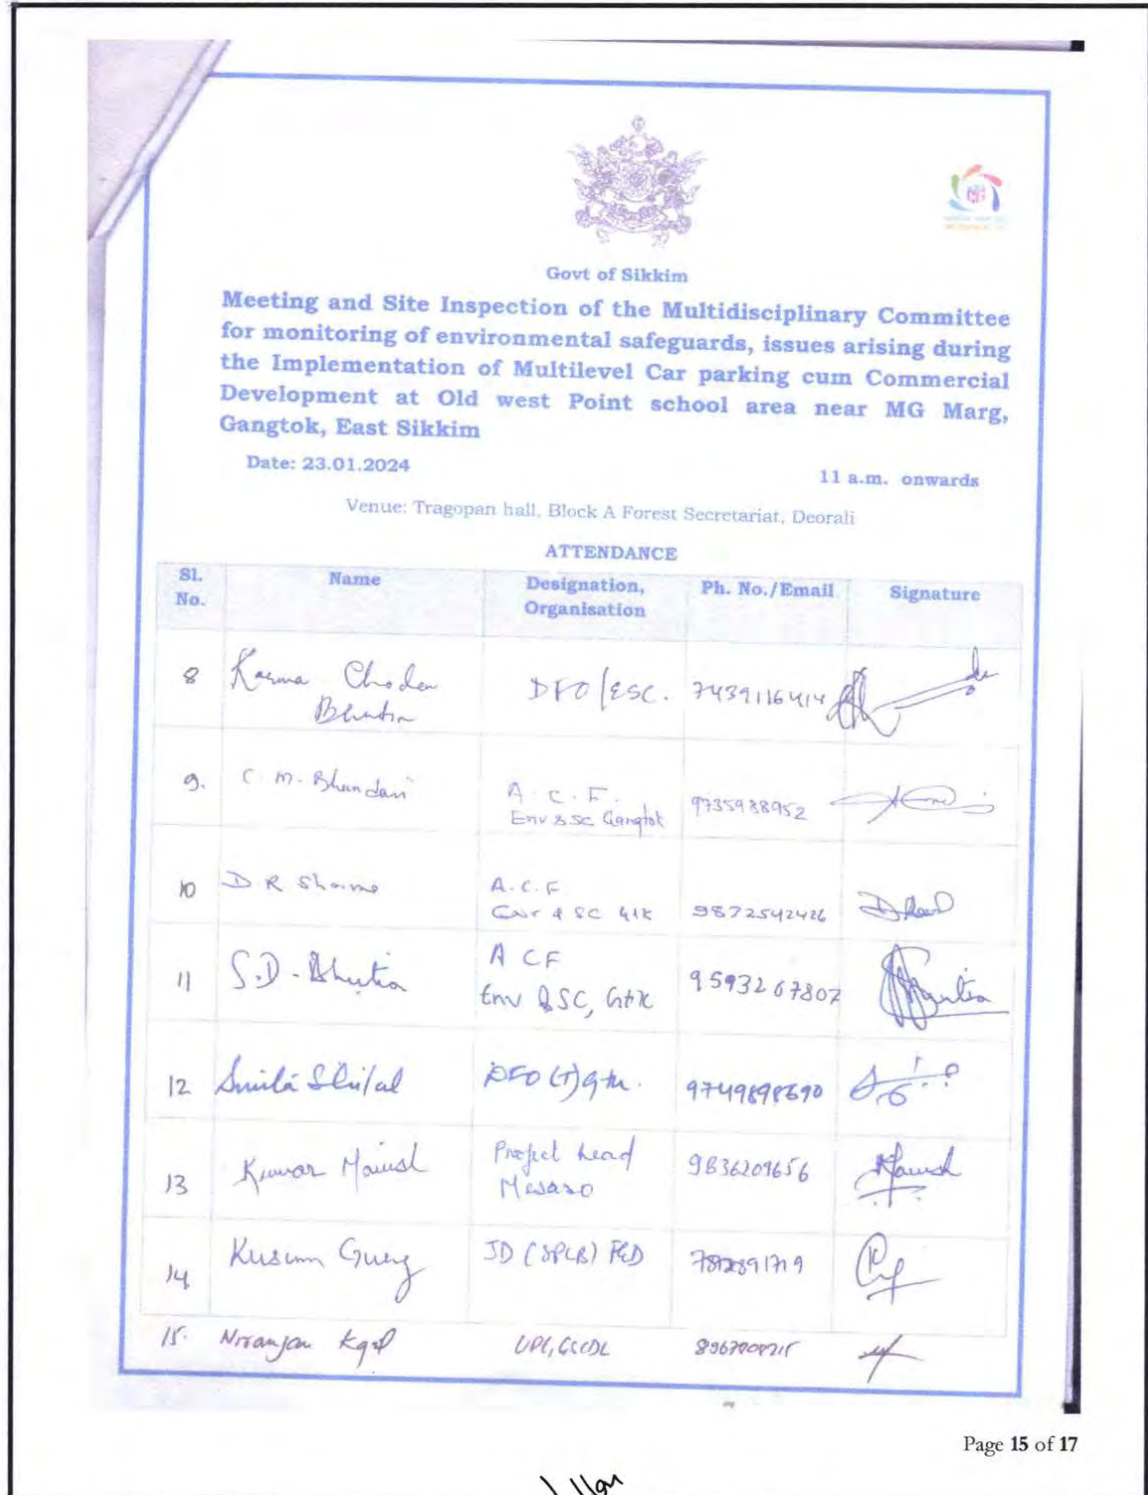 Govt of Sikkim
Meeting and Site Inspection of the Multidisciplinary Committee
for monitoring of environmental safeguards, issues arising during
the Implementation of Multilevel Car parking cum Commercial
Development at Old west Point school area near MG Marg,
Gangtok, East Sikkim
Date: 23.01.2024 11 a.m. onwards
Venue: Tragopan hall, Block A Forest Secretariat, Deorali
ATTENDANCE
Sl. No. Name Designation, Organisation Ph. No./Email Signature
8 Karma Choden Bhutia DFO/ESC. 7439116414
9. C. M. Bhandari A.C.F. Env & SC Gangtok 9735988952
10 D R Sharma A.C.F Env & SC Gtk 9872542426
11 S.D. Bhutia A CF Env & SC, Gtk 9593267807
12 DFO (T)
13 Kumar Manish Project head 9836209656 Manish
14 Kusum JD (SPCB)
15. Niranjan
Page 15 of 17